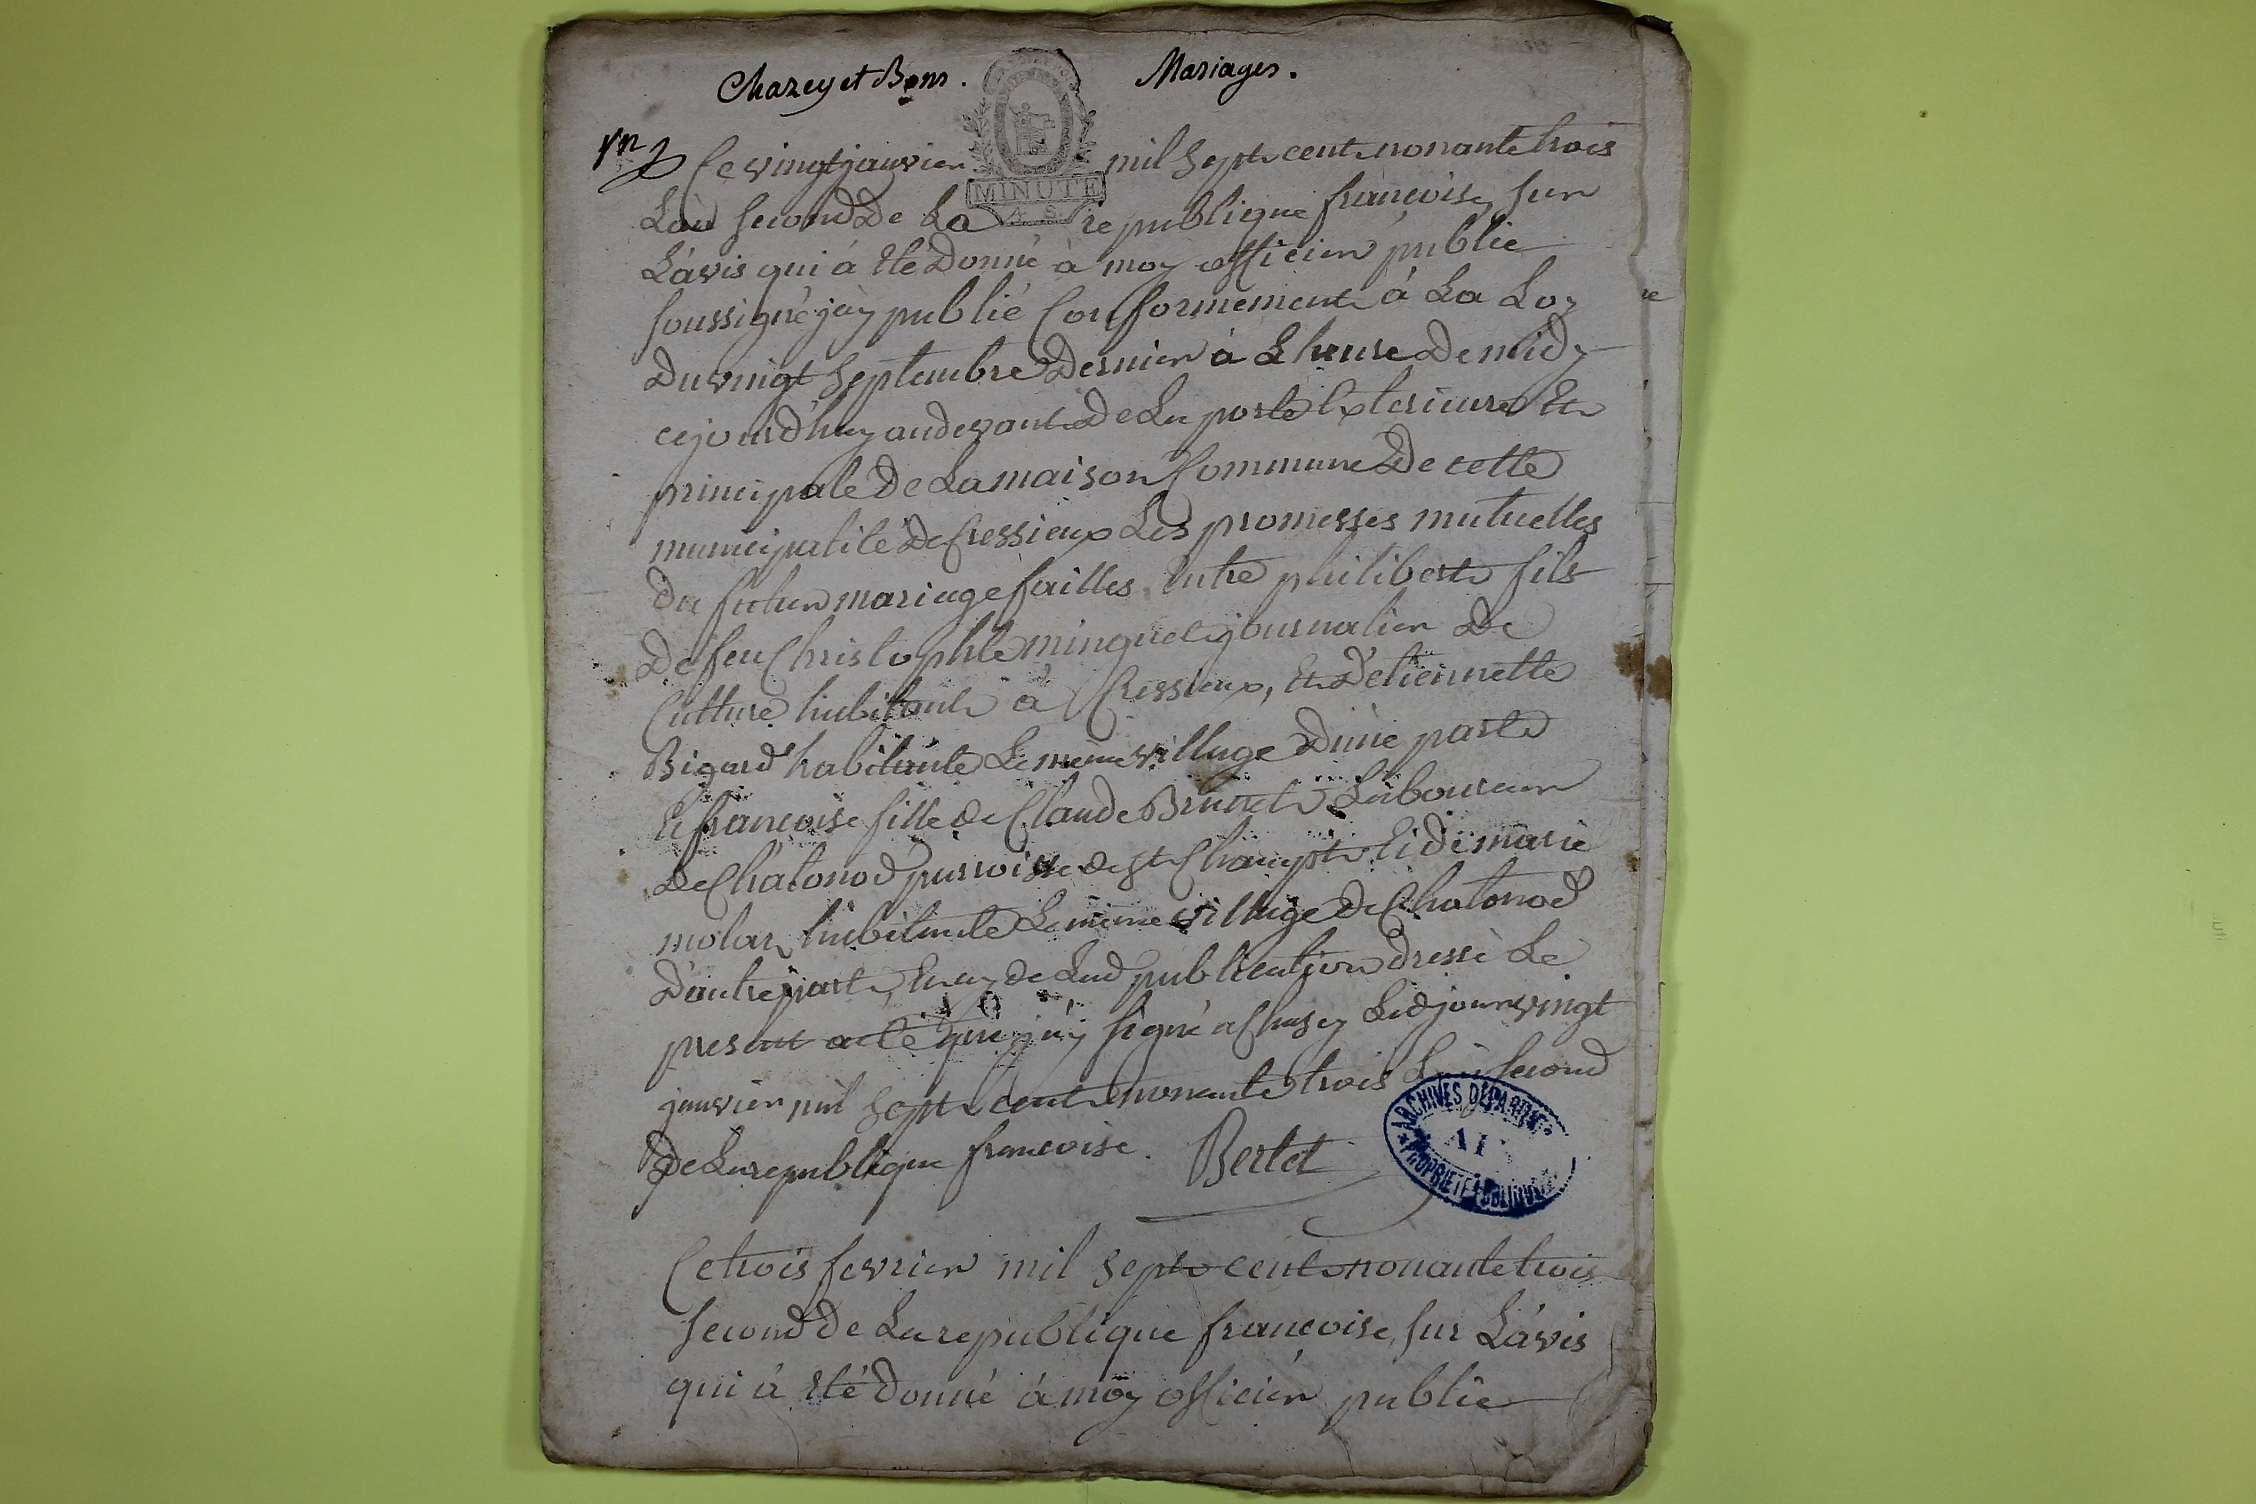 Chazey et Bons. Mariages.
Ce vingt janvier mil sept cent nonante trois
MINUTE
4. S
L'an second De La republique francoise, sur
L'avis qui á été Donné à moy officier public
soussigné j'ay publié Conformement á La Loy
Du vingt septembre Dernier à L'heure De midy
cejourd'huy audevant De La porte Exterieure Et
principale De La maison Commune De cette
municipalité De Cressieux Les promesses mutuelles
Du futur mariage faittes Entre philibert fils
De feu Christophle minguet journalier De
Culture habitant à Cressieux, Et D'etiennette
Bigard habitante Le même village D'une part
Et francoise fille De Claude Brunet Laboureur
De Chatonod parroisse De St Champt Et De marie
molar habitante Le même village De Chatonod
D'autre part, Et ay De Lad publication Dressé Le
present acte que j'ay signé a Chasey Led jour vingt
janvier mil sept cent nonante trois L'an second
De La republique francoise. Bertet
ARCHIVES DÉPARTEM
AI
PROPRIÉTÉ PUBLIQUE
Ce trois fevrier mil sept cent nonante trois
second De La republique francoise, sur L'avis
qui á été Donné à moy officier public